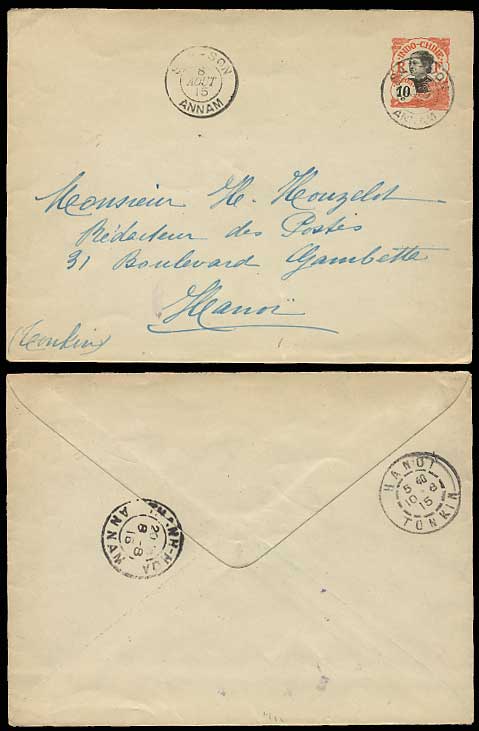 INDO-CHINE
R F
10
SON
8
AOUT
15
ANNAM
SON
ANNAM
Monsieur H. Houzelot
Rédacteur des Postes
31 Boulevard Gambetta
Hanoï
(Tonkin)
HANOI
5 40
10 - 8
15
TONKIN
THANH-HOA
20
8 -8
15
ANNAM